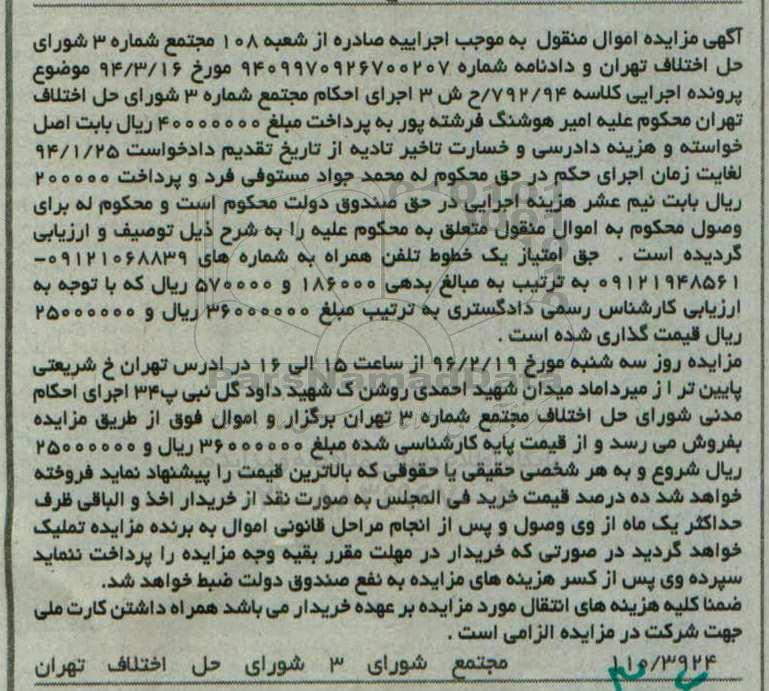 آگهی مزایده اموال منقول به موجب اجراییه صادره از شعبه ۱۰۸ مجتمع شماره ۳ شورای
حل اختلاف تهران و دادنامه شماره ۹۴۰۹۹۷۰۹۲۶۷۰۰۲۰۷ مورخ ۹۴/۳/۱۶ موضوع
پرونده اجرایی کلاسه ۷۹۲/۹۴/ح ش ۳ اجرای احکام مجتمع شماره ۳ شورای حل اختلاف
تهران محکوم علیه امیر هوشنگ فرشته پور به پرداخت مبلغ ۴۰۰۰۰۰۰۰ ریال بابت اصل
خواسته و هزینه دادرسی و خسارت تاخیر تادیه از تاریخ تقدیم دادخواست ۹۴/۱/۲۵
لغایت زمان اجرای حکم در حق محکوم له محمد جواد مستوفی فرد و پرداخت ۲۰۰۰۰۰
ریال بابت نیم عشر هزینه اجرایی در حق صندوق دولت محکوم است و محکوم له برای
وصول محکوم به اموال منقول متعلق به محکوم علیه را به شرح ذیل توصیف و ارزیابی
گردیده است . حق امتیاز یک خطوط تلفن همراه به شماره های ۰۹۱۲۱۰۶۸۸۳۹-
۰۹۱۲۱۹۴۸۵۶۱ به ترتیب به مبالغ بدهی ۱۸۶۰۰۰ و ۵۷۰۰۰۰ ریال که با توجه به
ارزیابی کارشناس رسمی دادگستری به ترتیب مبلغ ۳۶۰۰۰۰۰۰ ریال و ۲۵۰۰۰۰۰۰
ریال قیمت گذاری شده است .
مزایده روز سه شنبه مورخ ۹۶/۲/۱۹ از ساعت ۱۵ الی ۱۶ در ادرس تهران خ شریعتی
پایین تر ا ز میرداماد میدان شهید احمدی روشن ک شهید داود گل نبی پ۳۴ اجرای احکام
مدنی شورای حل اختلاف مجتمع شماره ۳ تهران برگزار و اموال فوق از طریق مزایده
بفروش می رسد و از قیمت پایه کارشناسی شده مبلغ ۳۶۰۰۰۰۰۰ ریال و ۲۵۰۰۰۰۰۰
ریال شروع و به هر شخصی حقیقی یا حقوقی که بالاترین قیمت را پیشنهاد نماید فروخته
خواهد شد ده درصد قیمت خرید فی المجلس به صورت نقد از خریدار اخذ و الباقی ظرف
حداکثر یک ماه از وی وصول و پس از انجام مراحل قانونی اموال به برنده مزایده تملیک
خواهد گردید در صورتی که خریدار در مهلت مقرر بقیه وجه مزایده را پرداخت ننماید
سپرده وی پس از کسر هزینه های مزایده به نفع صندوق دولت ضبط خواهد شد.
ضمنا کلیه هزینه های انتقال مورد مزایده بر عهده خریدار می باشد همراه داشتن کارت ملی
جهت شرکت در مزایده الزامی است .
۱۱۰/۳۹۲۴ مجتمع شورای ۳ شورای حل اختلاف تهران